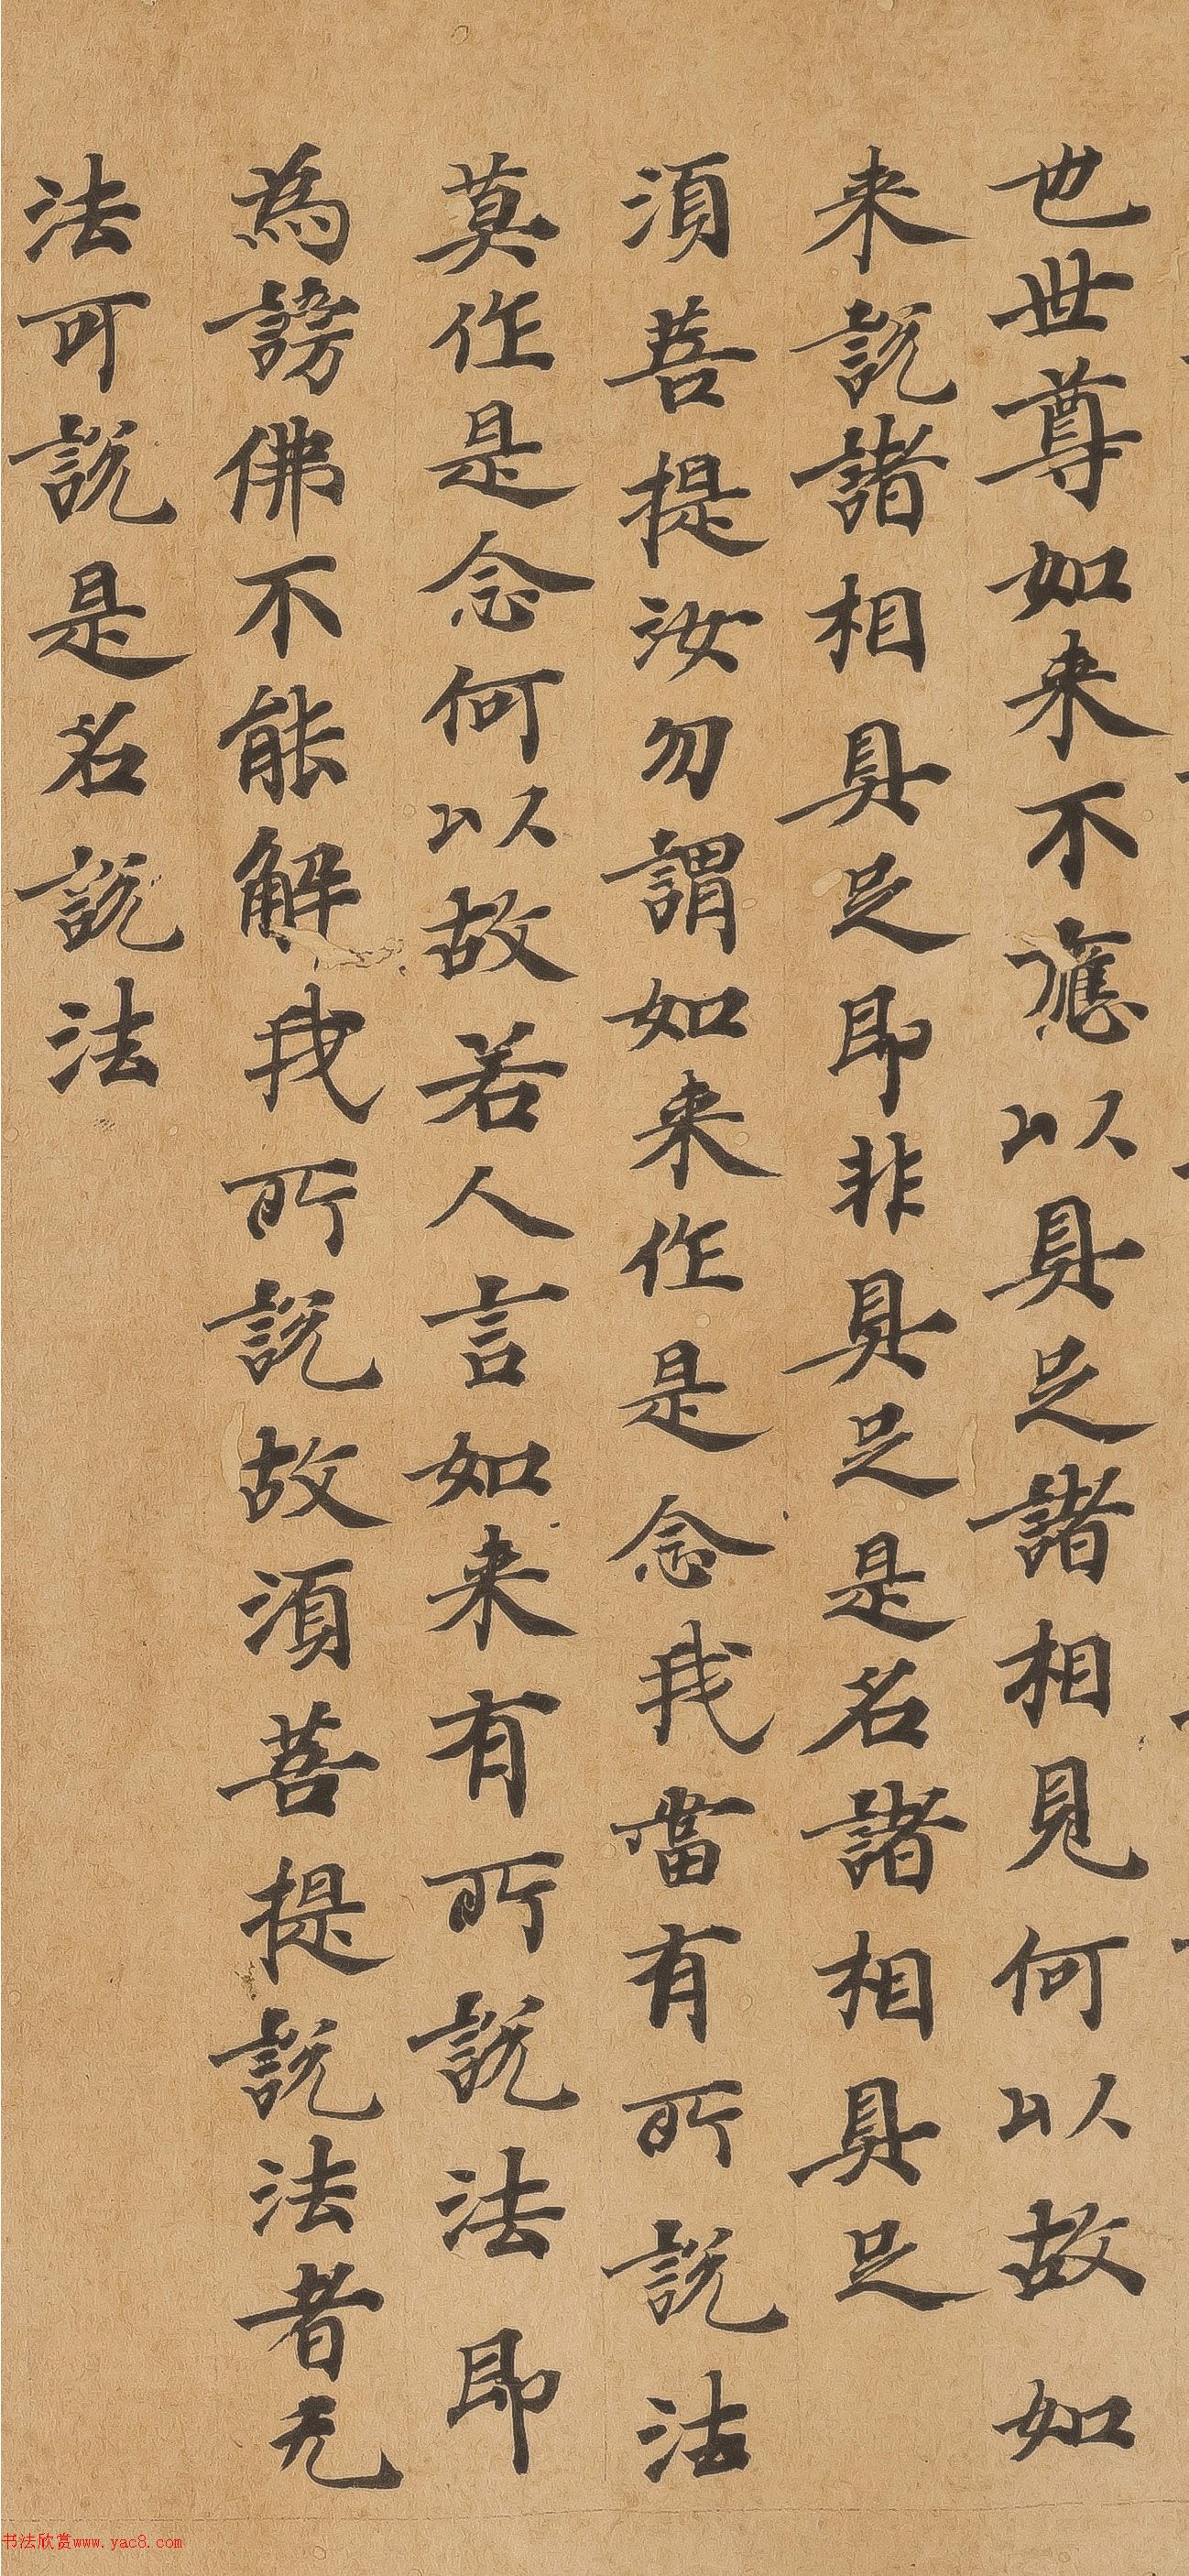 也世尊如来不應以具足諸相見何以故如
来説諸相具足即非具足是名諸相具足
湏菩提汝勿謂如来作是念我當有所説法
莫作是念何以故若人言如来有所説法即
為謗佛不能解我所説故湏菩提説法者无
法可説是名説法
书法欣赏www.yac8.com